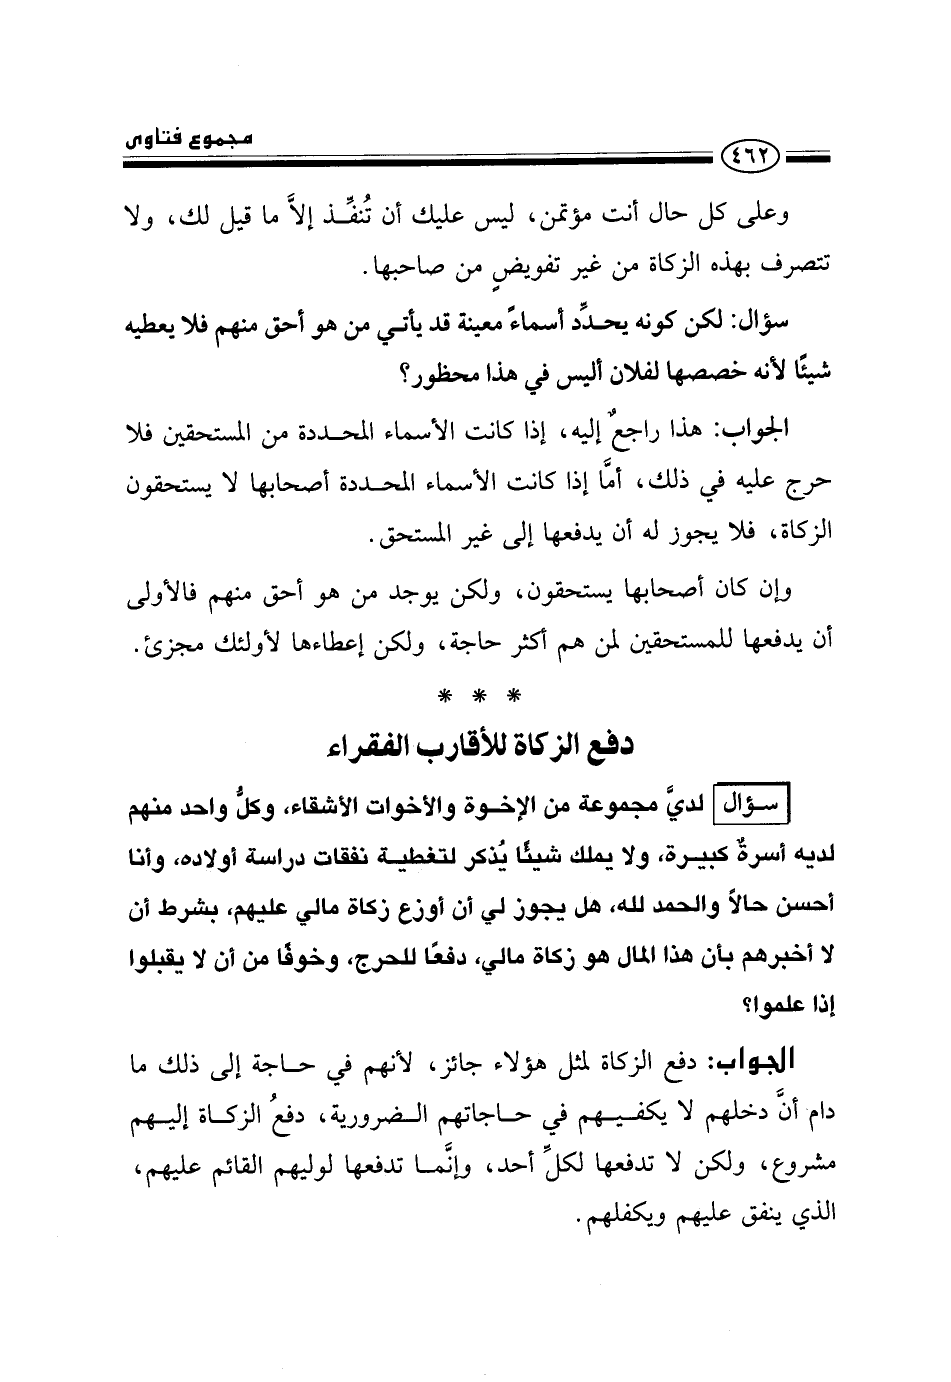 مجموع فتاوى
٤٦٢
وعلى كل حال أنت مؤتمن، ليس عليك أن تُنفِّذ إلاَّ ما قيل لك، ولا
تتصرف بهذه الزكاة من غير تفويضٍ من صاحبها.
سؤال: لكن كونه يحدِّد أسماءً معينة قد يأتي من هو أحق منهم فلا يعطيه
شيئًا لأنه خصصها لفلان أليس في هذا محظور؟
الجواب: هذا راجعٌ إليه، إذا كانت الأسماء المحددة من المستحقين فلا
حرج عليه في ذلك، أمَّا إذا كانت الأسماء المحددة أصحابها لا يستحقون
الزكاة، فلا يجوز له أن يدفعها إلى غير المستحق.
وإن كان أصحابها يستحقون، ولكن يوجد من هو أحق منهم فالأولى
أن يدفعها للمستحقين لمن هم أكثر حاجة، ولكن إعطاءها لأولئك مجزئ.
* * *
دفع الزكاة للأقارب الفقراء
سؤال لديَّ مجموعة من الإخوة والأخوات الأشقاء، وكلُّ واحد منهم
لديه أسرةٌ كبيرة، ولا يملك شيئًا يُذكر لتغطية نفقات دراسة أولاده، وأنا
أحسن حالاً والحمد لله، هل يجوز لي أن أوزع زكاة مالي عليهم، بشرط أن
لا أخبرهم بأن هذا المال هو زكاة مالي، دفعًا للحرج، وخوفًا من أن لا يقبلوا
إذا علموا؟
الجواب: دفع الزكاة لمثل هؤلاء جائز، لأنهم في حاجة إلى ذلك ما
دام أنَّ دخلهم لا يكفيهم في حاجاتهم الضرورية، دفعُ الزكاة إليهم
مشروع، ولكن لا تدفعها لكلِّ أحد، وإنَّما تدفعها لوليهم القائم عليهم،
الذي ينفق عليهم ويكفلهم.